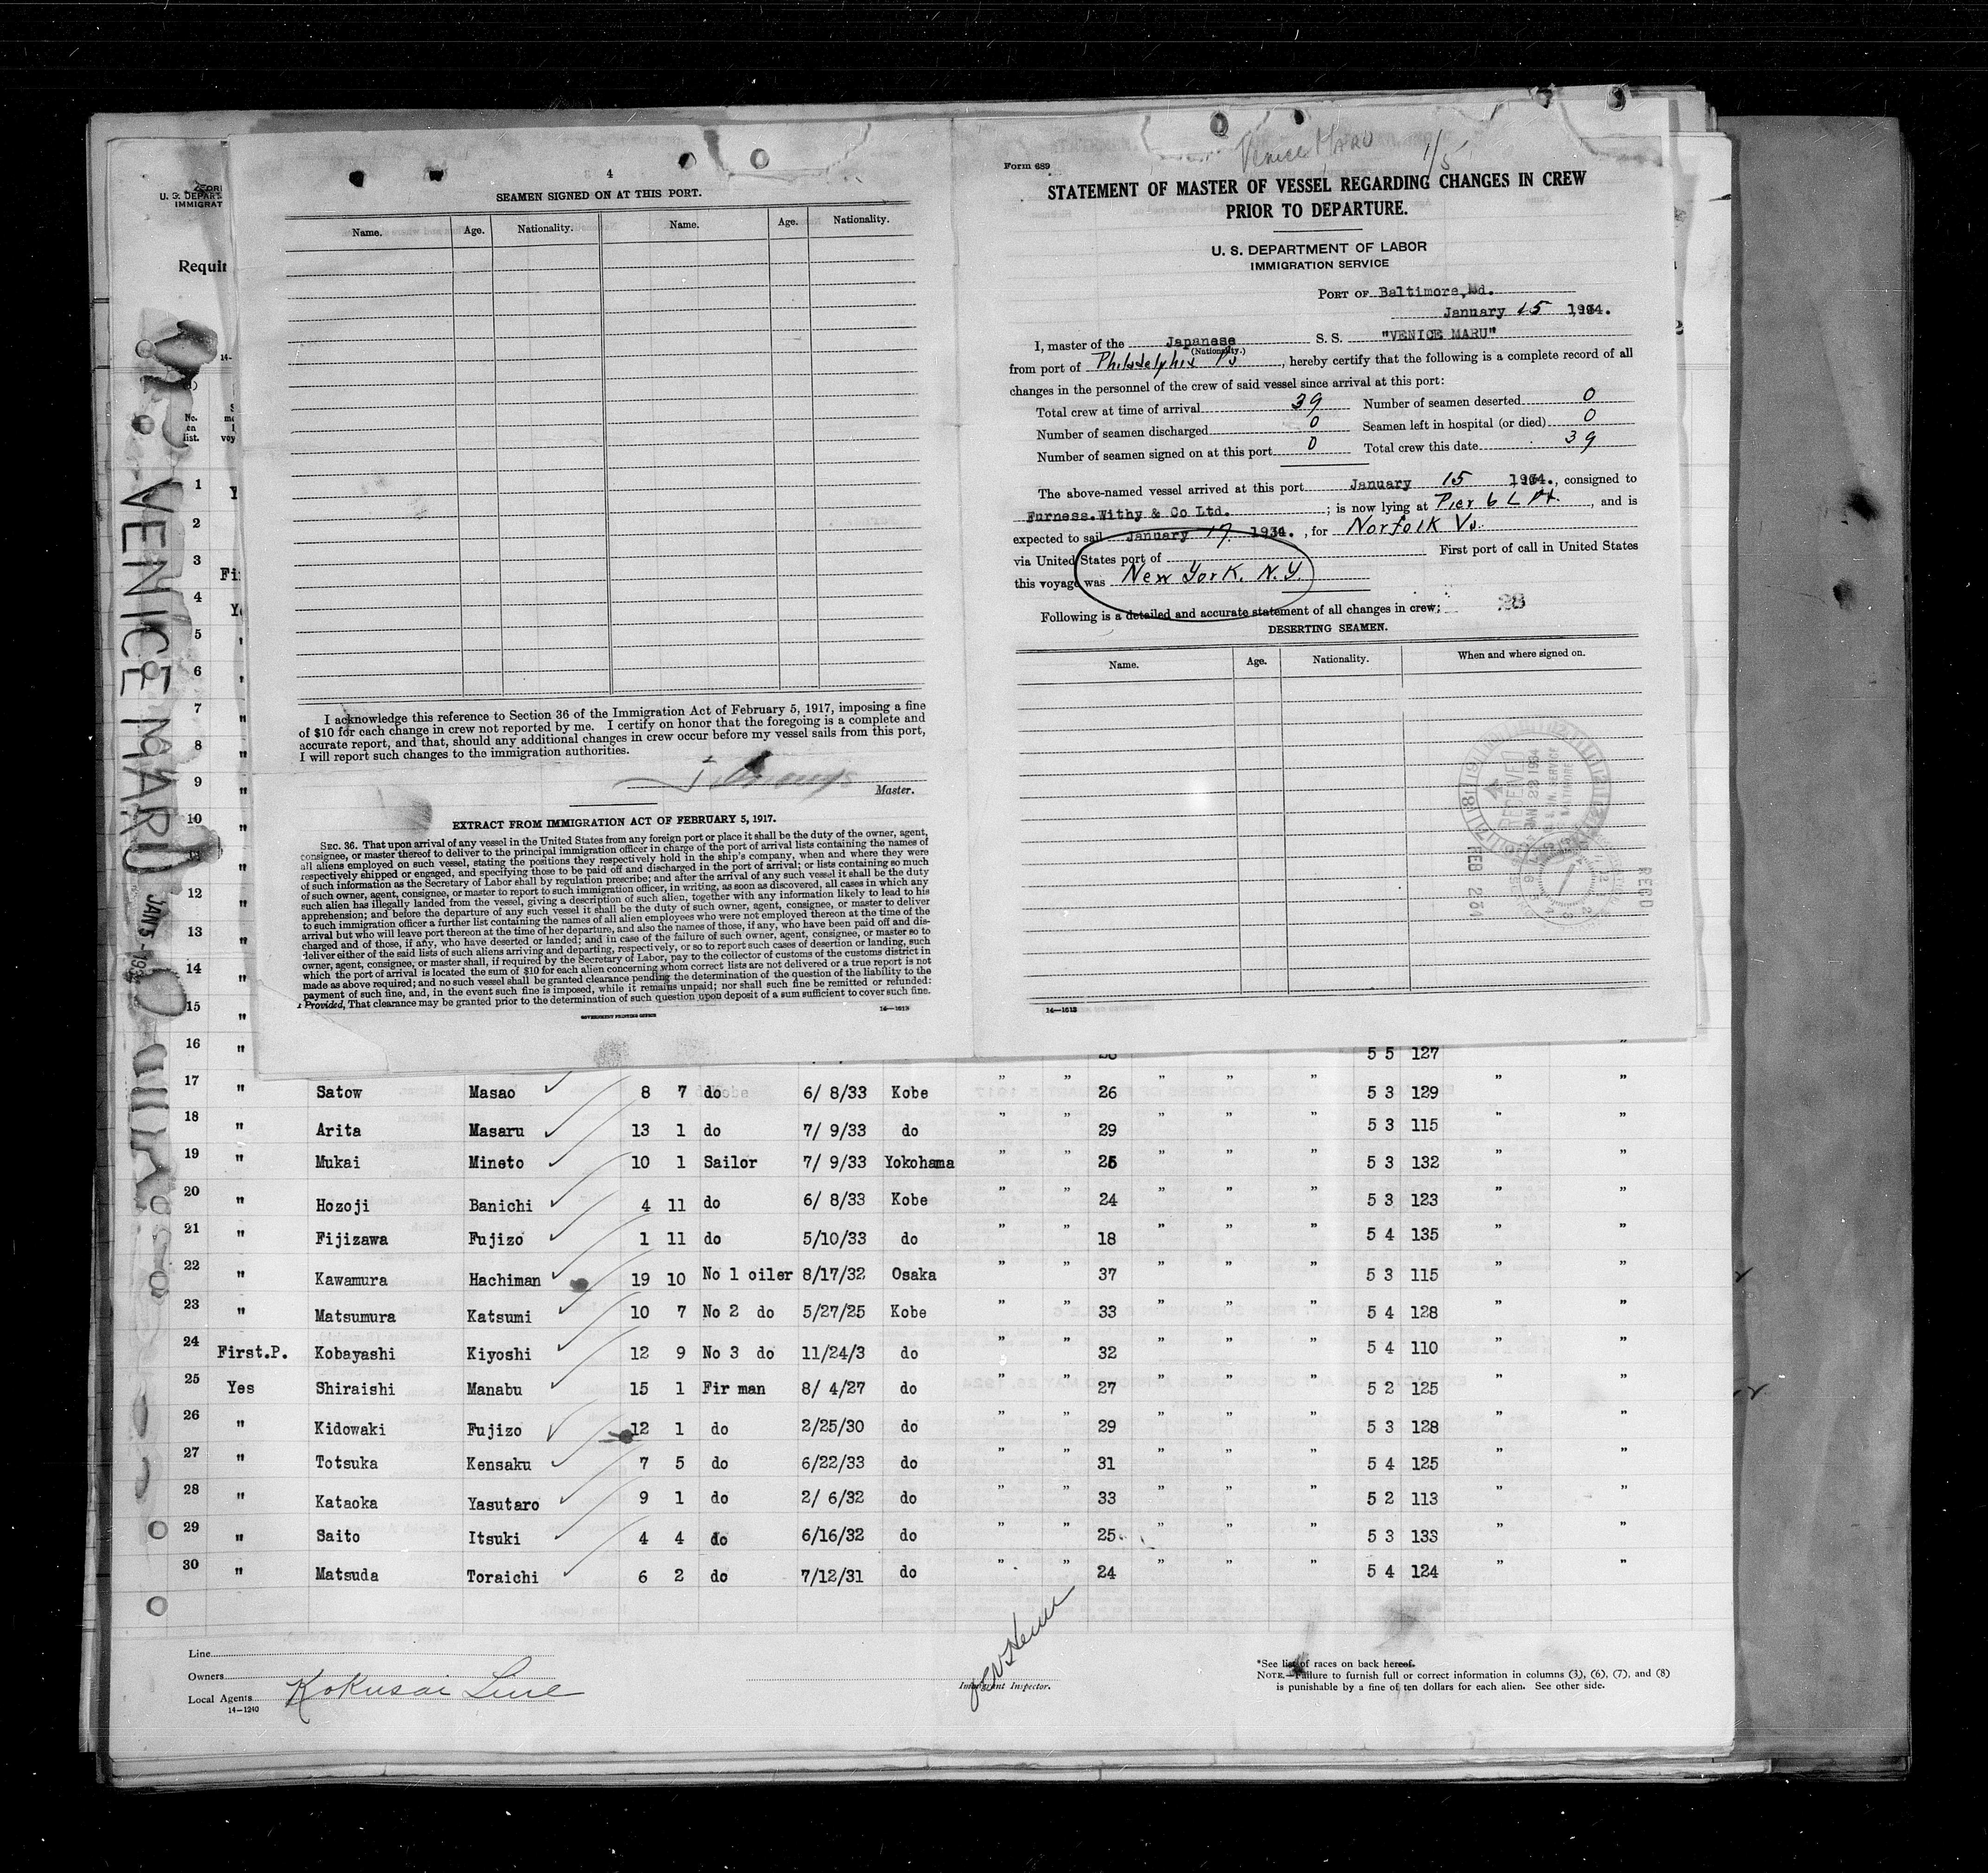 4
SEAMEN SIGNED ON AT THIS PORT.
Name. Age. Nationality. Name. Age. Nationality.
I acknowledge this reference to Section 36 of the Immigration Act of February 5, 1917, imposing a fine
of $10 for each change in crew not reported by me. I certify on honor that the foregoing is a complete and
accurate report, and that, should any additional changes in crew occur before my vessel sails from this port,
I will report such changes to the immigration authorities.
Master.
EXTRACT FROM IMMIGRATION ACT OF FEBRUARY 5, 1917.
SEC. 36. That upon arrival of any vessel in the United States from any foreign port or place it shall be the duty of the owner, agent,
consignee, or master thereof to deliver to the principal immigration officer in charge of the port of arrival lists containing the names of
all aliens employed on such vessel, stating the positions they respectively hold in the ship's company, when and where they were
respectively shipped or engaged, and specifying those to be paid off and discharged in the port of arrival; or lists containing so much
of such information as the Secretary of Labor shall by regulation prescribe; and after the arrival of any such vessel it shall be the duty
of such owner, agent, consignee, or master to report to such immigration officer, in writing, as soon as discovered, all cases in which any
such alien has illegally landed from the vessel, giving a description of such alien, together with any information likely to lead to his
apprehension; and before the departure of any such vessel it shall be the duty of such owner, agent, consignee, or master to deliver
to such immigration officer a further list containing the names of all alien employees who were not employed thereon at the time of the
arrival but who will leave port thereon at the time of her departure, and also the names of those, if any, who have been paid off and dis-
charged and of those, if any, who have deserted or landed; and in case of the failure of such owner, agent, consignee, or master so to
deliver either of the said lists of such aliens arriving and departing, respectively, or so to report such cases of desertion or landing, such
owner, agent, consignee, or master shall, if required by the Secretary of Labor, pay to the collector of customs of the customs district in
which the port of arrival is located the sum of $10 for each alien concerning whom correct lists are not delivered or a true report is not
made as above required; and no such vessel shall be granted clearance pending the determination of the question of the liability to the
payment of such fine, and, in the event such fine is imposed, while it remains unpaid; nor shall such fine be remitted or refunded:
Provided, That clearance may be granted prior to the determination of such question upon deposit of a sum sufficient to cover such fine.
GOVERNMENT PRINTING OFFICE 14—1613
Venice MARU 1/5
Form 689
STATEMENT OF MASTER OF VESSEL REGARDING CHANGES IN CREW
PRIOR TO DEPARTURE.
U. S. DEPARTMENT OF LABOR
IMMIGRATION SERVICE
PORT OF Baltimore, Md.
January 15 1934.
I, master of the Japanese S. S. "VENICE MARU"
(Nationality.)
from port of Philadelphia Pa, hereby certify that the following is a complete record of all
changes in the personnel of the crew of said vessel since arrival at this port:
Total crew at time of arrival 39 Number of seamen deserted 0
Number of seamen discharged 0 Seamen left in hospital (or died) 0
Number of seamen signed on at this port 0 Total crew this date 39
The above-named vessel arrived at this port January 15 1934., consigned to
Furness. Withy & Co Ltd. ; is now lying at Pier 6 L Pt., and is
expected to sail January 17. 1934., for Norfolk Va.
via United States port of First port of call in United States
this voyage was New York. N.Y.
Following is a detailed and accurate statement of all changes in crew; 28
DESERTING SEAMEN.
Name. Age. Nationality. When and where signed on.
RECEIVED
JAN 23 1934
BALTIMORE
REC'D
FEB 2 34
14—1613
U. S. DEPART
IMMIGRAT
Requir
VENICE MARU JAN 5 - 193
1
2
3
4
5
6
7
8
9
10
12
13
14
15
16 " 5 5 127 "
17 " Satow Masao 8 7 do 6/ 8/33 Kobe " " 26 " " " 5 3 129 " "
18 " Arita Masaru 13 1 do 7/ 9/33 do " " 29 " " " 5 3 115 " "
19 " Mukai Mineto 10 1 Sailor 7/ 9/33 Yokohama " " 26 " " " 5 3 132 " "
20 " Hozoji Banichi 4 11 do 6/ 8/33 Kobe " " 24 " " " 5 3 123 " "
21 " Fijizawa Fujizo 1 11 do 5/10/33 do " " 18 " " " 5 4 135 " "
22 " Kawamura Hachiman 19 10 No 1 oiler 8/17/32 Osaka " " 37 " " " 5 3 115 " "
23 " Matsumura Katsumi 10 7 No 2 do 5/27/25 Kobe " " 33 " " " 5 4 128 " "
24 First.P. Kobayashi Kiyoshi 12 9 No 3 do 11/24/3 do " " 32 " " " 5 4 110 " "
25 Yes Shiraishi Manabu 15 1 Fir man 8/ 4/27 do " " 27 " " " 5 2 125 " "
26 " Kidowaki Fujizo 12 1 do 2/25/30 do " " 29 " " " 5 3 128 " "
27 " Totsuka Kensaku 7 5 do 6/22/33 do " " 31 " " " 5 4 125 " "
28 " Kataoka Yasutaro 9 1 do 2/ 6/32 do " " 33 " " " 5 2 113 " "
29 " Saito Itsuki 4 4 do 6/16/32 do " " 25 " " " 5 3 133 " "
30 " Matsuda Toraichi 6 2 do 7/12/31 do " " 24 " " " 5 4 124 " "
Line
Owners
Local Agents Kokusai Line
14—1240
Immigrant Inspector.
*See list of races on back hereof.
NOTE.—Failure to furnish full or correct information in columns (3), (6), (7), and (8)
is punishable by a fine of ten dollars for each alien. See other side.